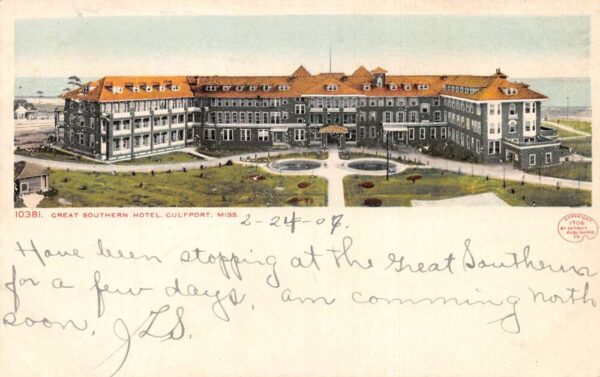 10381. GREAT SOUTHERN HOTEL, GULFPORT, MISS.
COPYRIGHT
1906
BY DETROIT
PUBLISHING
CO.
2-24-07.
Have been stopping at the Great Southern
for a few days, am comming North
soon. JLS.